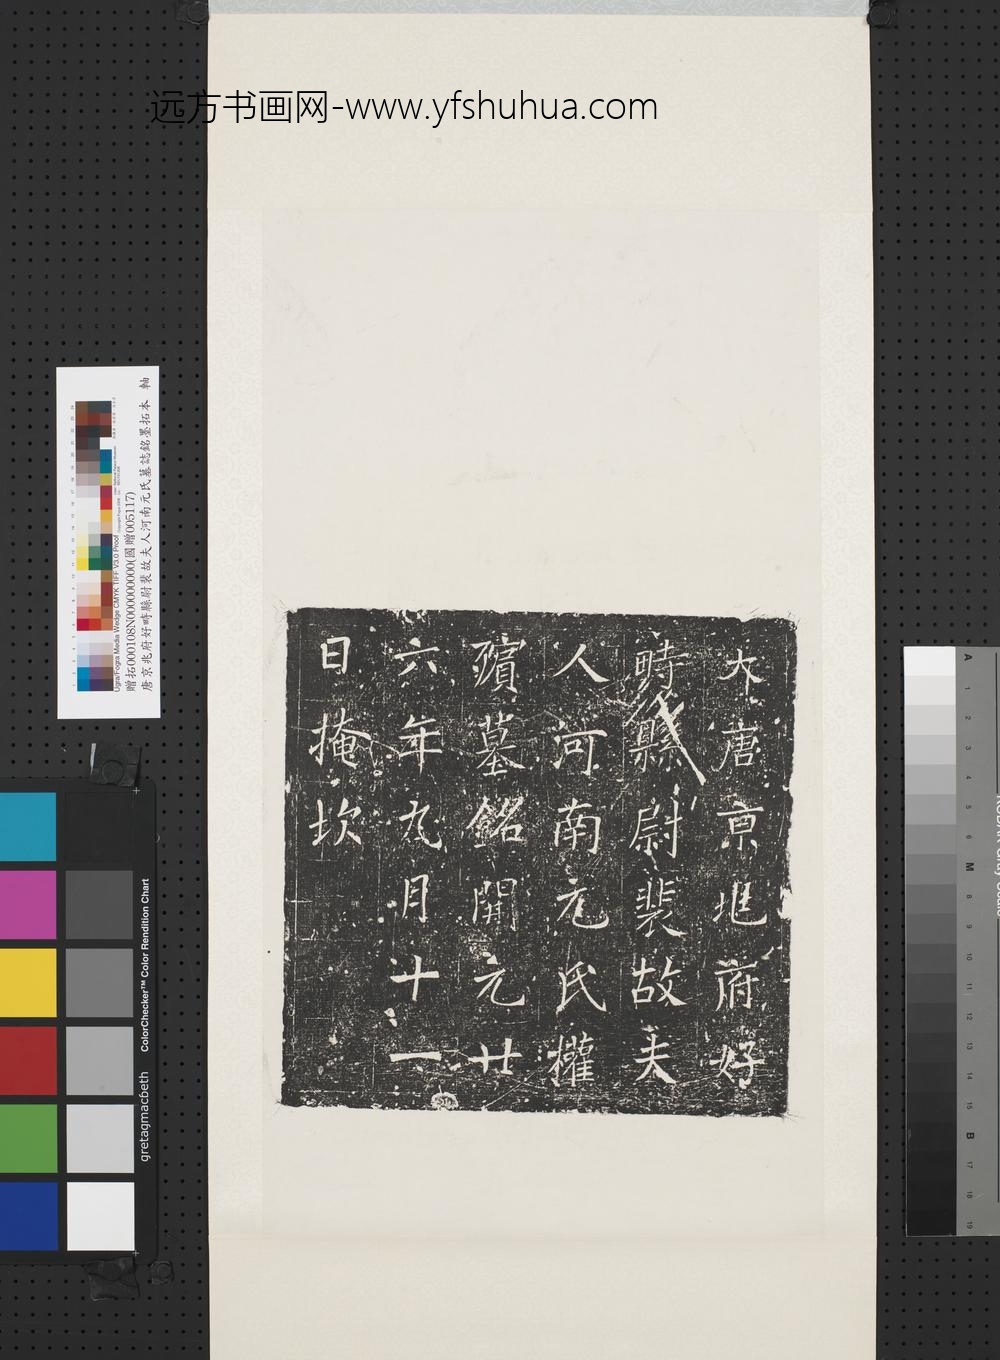 远方书画网-www.yfshuhua.com
大唐京兆府好
畤縣尉裴故夫
人河南元氏權
殯墓銘開元廿
六年九月十一
日掩坎
贈拓000108N000000000(國贈005117)
唐京兆府好畤縣尉裴故夫人河南元氏墓誌銘墨拓本 軸
Ugra/Fogra Media Wedge CMYK TIFF V3.0 Proof
ColorChecker™ Color Rendition Chart
gretagmacbeth
A
1
2
3
5
6
M
8
9
10
11
12
13
14
15
B
17
18
19